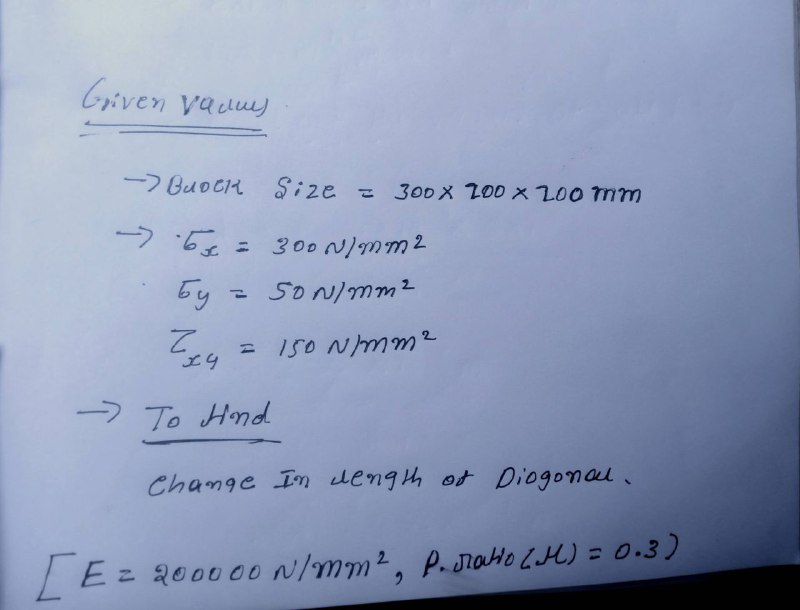 Given Values
→ Block Size = 300 x 200 x 200 mm
→ σx = 300 N/mm²
σy = 50 N/mm²
τxy = 150 N/mm²
→ To find
Change In length of Diogonal.
[E = 200000 N/mm², P. ratio (μ) = 0.3)